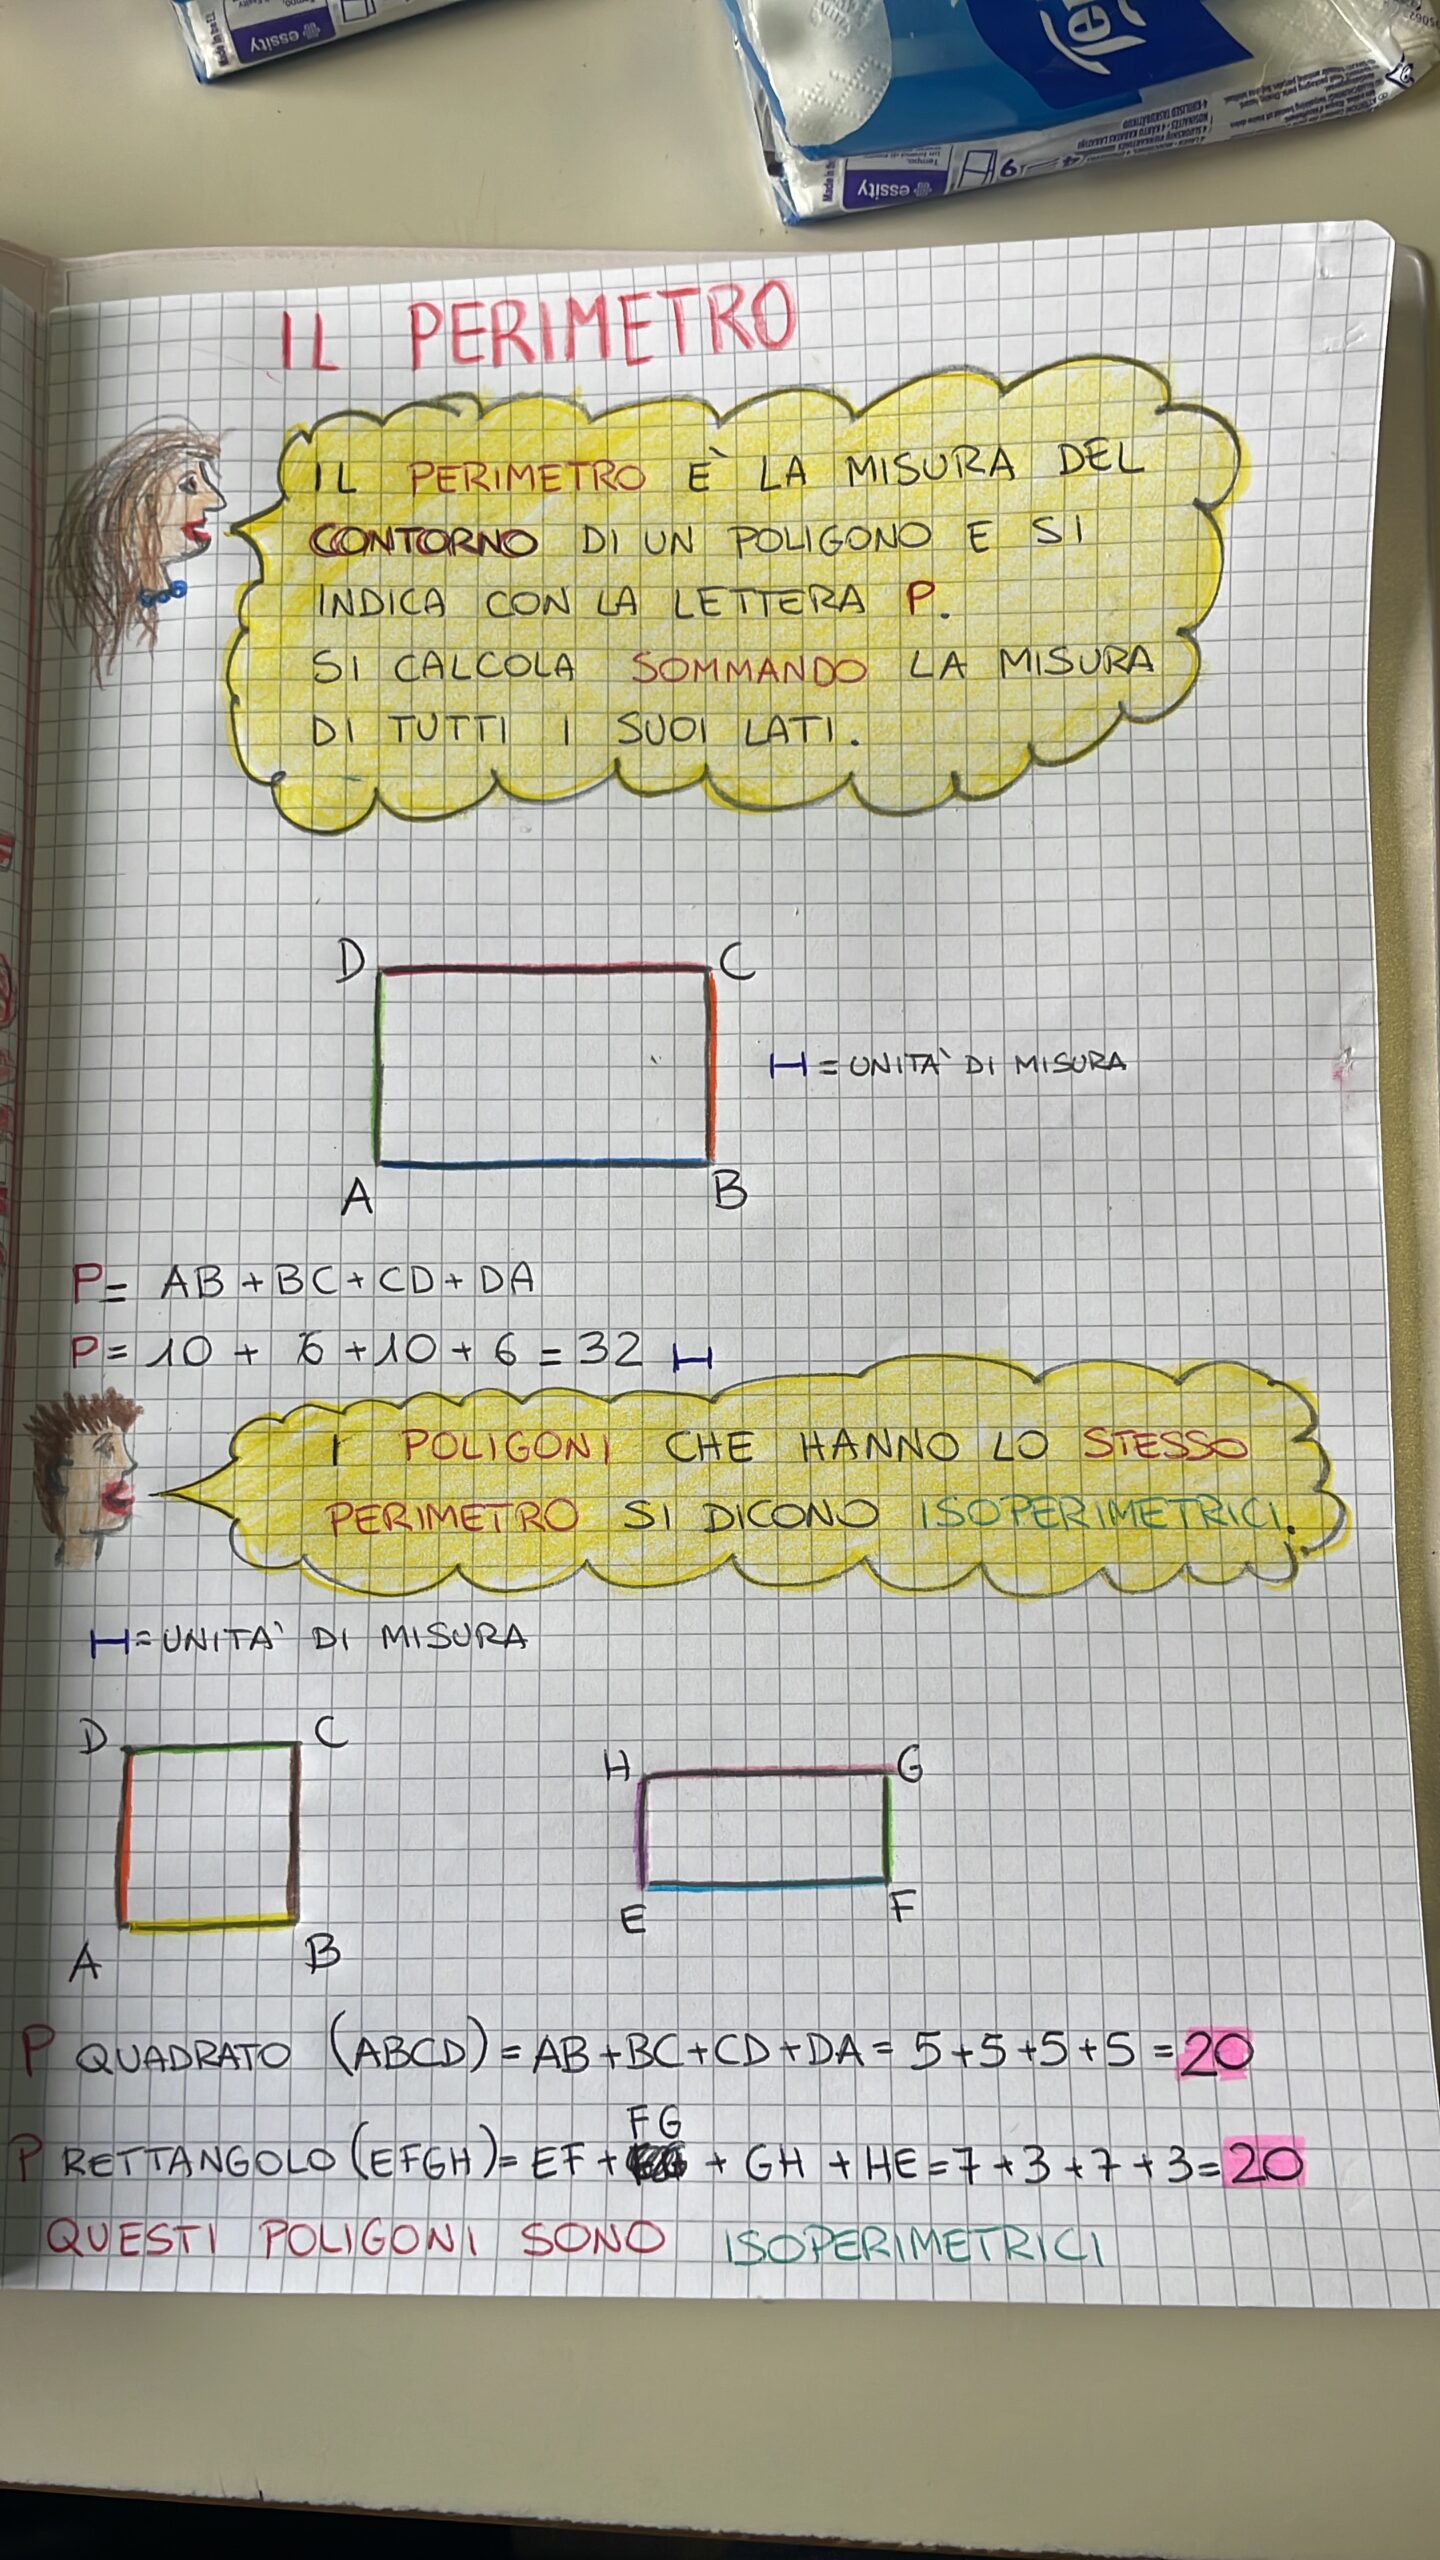 essity
essity
Tempo.
IL PERIMETRO
IL PERIMETRO È LA MISURA DEL
CONTORNO DI UN POLIGONO E SI
INDICA CON LA LETTERA P.
SI CALCOLA SOMMANDO LA MISURA
DI TUTTI I SUOI LATI.
D C
H = UNITA' DI MISURA
A B
P= AB+BC+CD+DA
P= 10 + 6 +10 + 6 = 32 H
I POLIGONI CHE HANNO LO STESSO
PERIMETRO SI DICONO ISOPERIMETRICI.
H = UNITA' DI MISURA
D C H G
A B E F
P QUADRATO (ABCD) = AB+BC+CD+DA= 5+5+5+5 =20
FG
P RETTANGOLO (EFGH)= EF + + GH + HE=7+3+7+3=20
QUESTI POLIGONI SONO ISOPERIMETRICI